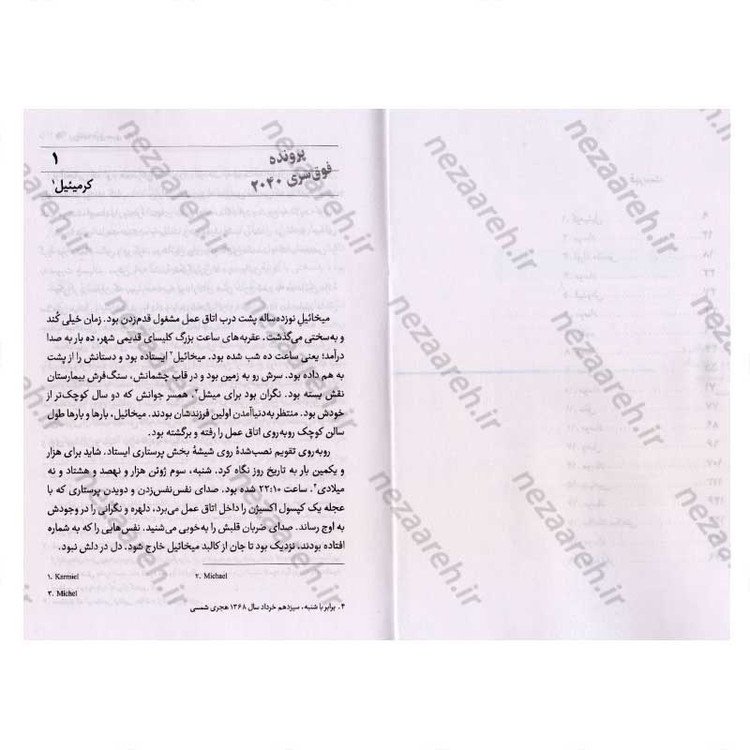 پرونده
فوق‌سری ۲۰۴۰
۱
کرمیئیل۱
میخائیلِ نوزده‌ساله پشت درب اتاق عمل مشغول قدم‌زدن بود. زمان خیلی کُند
و به‌سختی می‌گذشت. عقربه‌های ساعت بزرگ کلیسای قدیمی شهر، ده بار به صدا
درآمد؛ یعنی ساعت ده شب شده بود. میخائیل۲ ایستاده بود و دستانش را از پشت
به هم داده بود. سرش رو به زمین بود و در قاب چشمانش، سنگ‌فرش بیمارستان
نقش بسته بود. نگران بود برای میشل۳. همسر جوانش که دو سال کوچک‌تر از
خودش بود. منتظر به‌دنیاآمدن اولین فرزندشان بودند. میخائیل، بارها و بارها طول
سالن کوچک روبه‌روی اتاق عمل را رفته و برگشته بود.
روبه‌روی تقویم نصب‌شدهٔ روی شیشهٔ بخش پرستاری ایستاد. شاید برای هزار
و یکمین بار به تاریخ روز نگاه کرد. شنبه، سوم ژوئن هزار و نهصد و هشتاد و نه
میلادی۴. ساعت ۲۲:۱۰ شده بود. صدای نفس‌نفس‌زدن و دویدن پرستاری که با
عجله یک کپسول اکسیژن را داخل اتاق عمل می‌برد، دلهره و نگرانی را در وجودش
به اوج رساند. صدای ضربان قلبش را به‌خوبی می‌شنید. نفس‌هایی را که به شماره
افتاده بودند، نزدیک بود تا جان از کالبد میخائیل خارج شود. دل در دلش نبود.
۱. Karmiel
۲. Michael
۳. Michel
۴. برابر با شنبه، سیزدهم خرداد سال ۱۳۶۸ هجری شمسی
nezaareh.ir
nezaareh.ir
nezaareh.ir
nezaareh.ir
nezaareh.ir
nezaareh.ir
nezaareh.ir
nezaareh.ir
nezaareh.ir
nezaareh.ir
nezaareh.ir